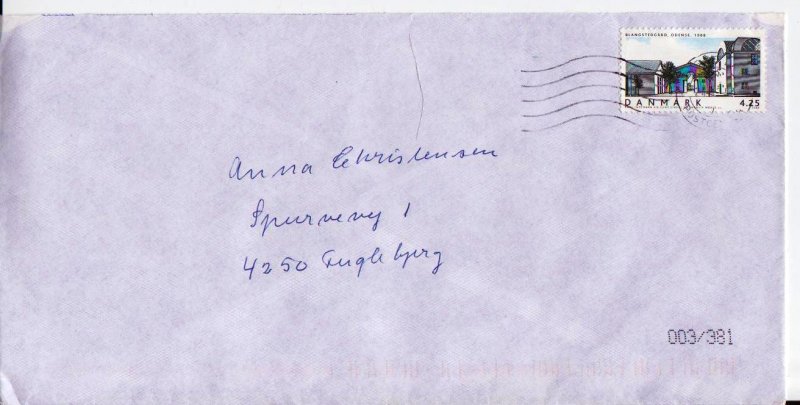 BLANGSTEDGÅRD, ODENSE, 1988
DANMARK 4.25
Anna Christensen
Spurvevej 1
4250 Fuglebjerg
003/381